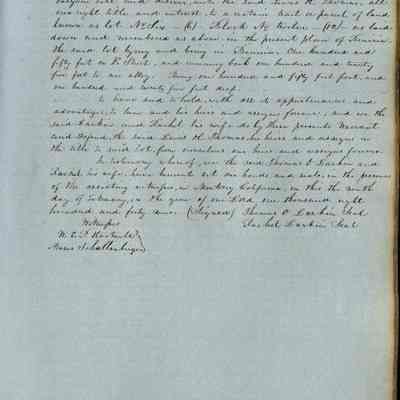 our right title and interest, to a certain lot or parcel of land
known as lot No six (6) Block No Twelve (12) as laid
down and numbered as above in the present plan of Benicia
the said lot lying and being in Benicia One hundred and
fifty feet on Street, and running back one hundred and twenty
five feet to an alley. Being one hundred and fifty feet front, and
one hundred and twenty five feet deep.
To have and to hold, with all it appurtenances and
advantages, to him and his heirs and assigns forever, and we the
said Larkin and Rachel his wife do by these presents Warrant
and Defend, the said Lewis his heirs and assigns in
the title to said lot, from ourselves our heirs and assigns forever.
In testimony whereof, we the said Thomas O Larkin and
Rachel his wife, have hereunto set our hands and seals, in the presence
of the executing witnesses, in Monterey California, on this the ninth
day of February, in the year of our Lord, one thousand eight
hundred and forty nine. (Signed) Thomas O Larkin Seal
Witnesses Rachel Larkin Seal
W. E. P. Hartnell
Moses Schallenberger